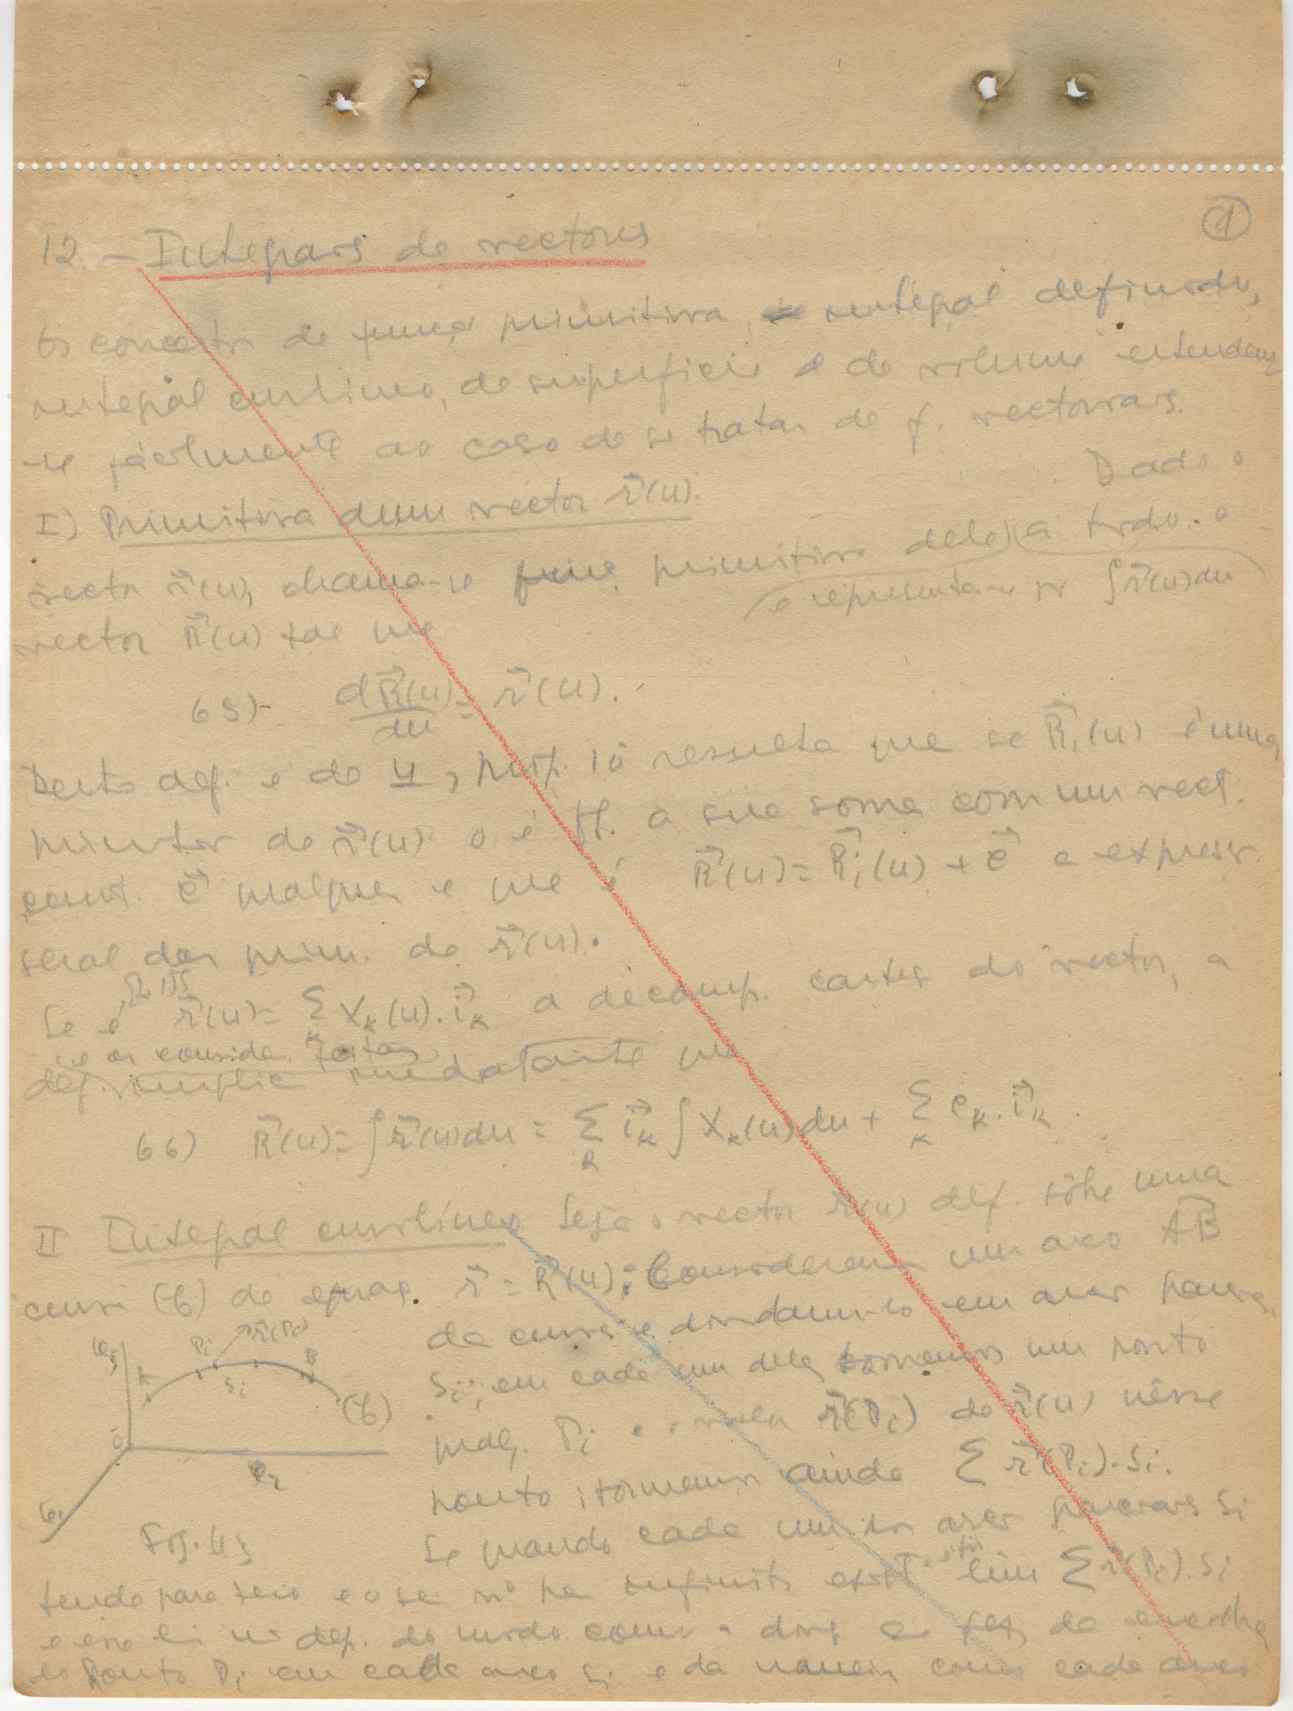 1
12 — Integrais de vectores
Os conceitos de função primitiva, integral definido,
integral curvilíneo, de superfície e de volume estendem
-se fàcilmente ao caso de se tratar de f. vectoriais.
I) Primitiva dum vector r⃗(u). Dado o
vector r⃗(u), chama-se primitiva dele a todo o
e representa-se por ∫r⃗(u)du
vector R⃗(u) tal que
65)- dR⃗(u)/du = r⃗(u).
Desta def. e de 4, prop. 10 resulta que se R⃗₁(u) é uma
primitiva de r⃗(u) o é tb. a sua soma com um vect.
const. c⃗ qualquer e que é R⃗(u) = R⃗₁(u) + c⃗ a express.
geral das prim. de r⃗(u).
Se é r⃗(u) = Σ_k X_k(u).i⃗_k a decomp. cartes. do vector, a
def.
66) R⃗(u) = ∫r⃗(u)du = Σ_k i⃗_k ∫X_k(u)du + Σ_k c_k.i⃗_k
II Integral curvilíneo Seja o vector r⃗(u) def. sôbre uma
curva (C) de equaç. r⃗ = R⃗(u); Consideremos um arco AB
da curva e dividamo-lo em arcos parciais
s_i; em cada um deles tomemos um ponto
qualq. P_i e o valor r⃗(P_i) de r⃗(u) nêsse
ponto; formemos ainda Σ r⃗(P_i).s_i.
P_i r⃗(P_i)
s_i B
(C)
O
Fig. 43
Se quando cada um dos arcos parciais s_i
tende para zero e o seu nº para infinito existe lim Σ r⃗(P_i).s_i
e esse lim não dep. do modo como a div. de escolha
do ponto P_i em cada arco s_i e da maneira como cada arco